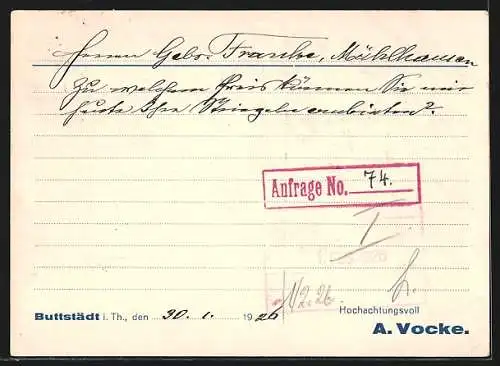 Herren Gebr. Franke, Mühlhausen
Zu welchem Preis können Sie mir
heute Ihre Striegel anbieten?
Anfrage No. 74.
1/2.26.
Buttstädt i. Th., den 30. 1. 1926
Hochachtungsvoll
A. Vocke.